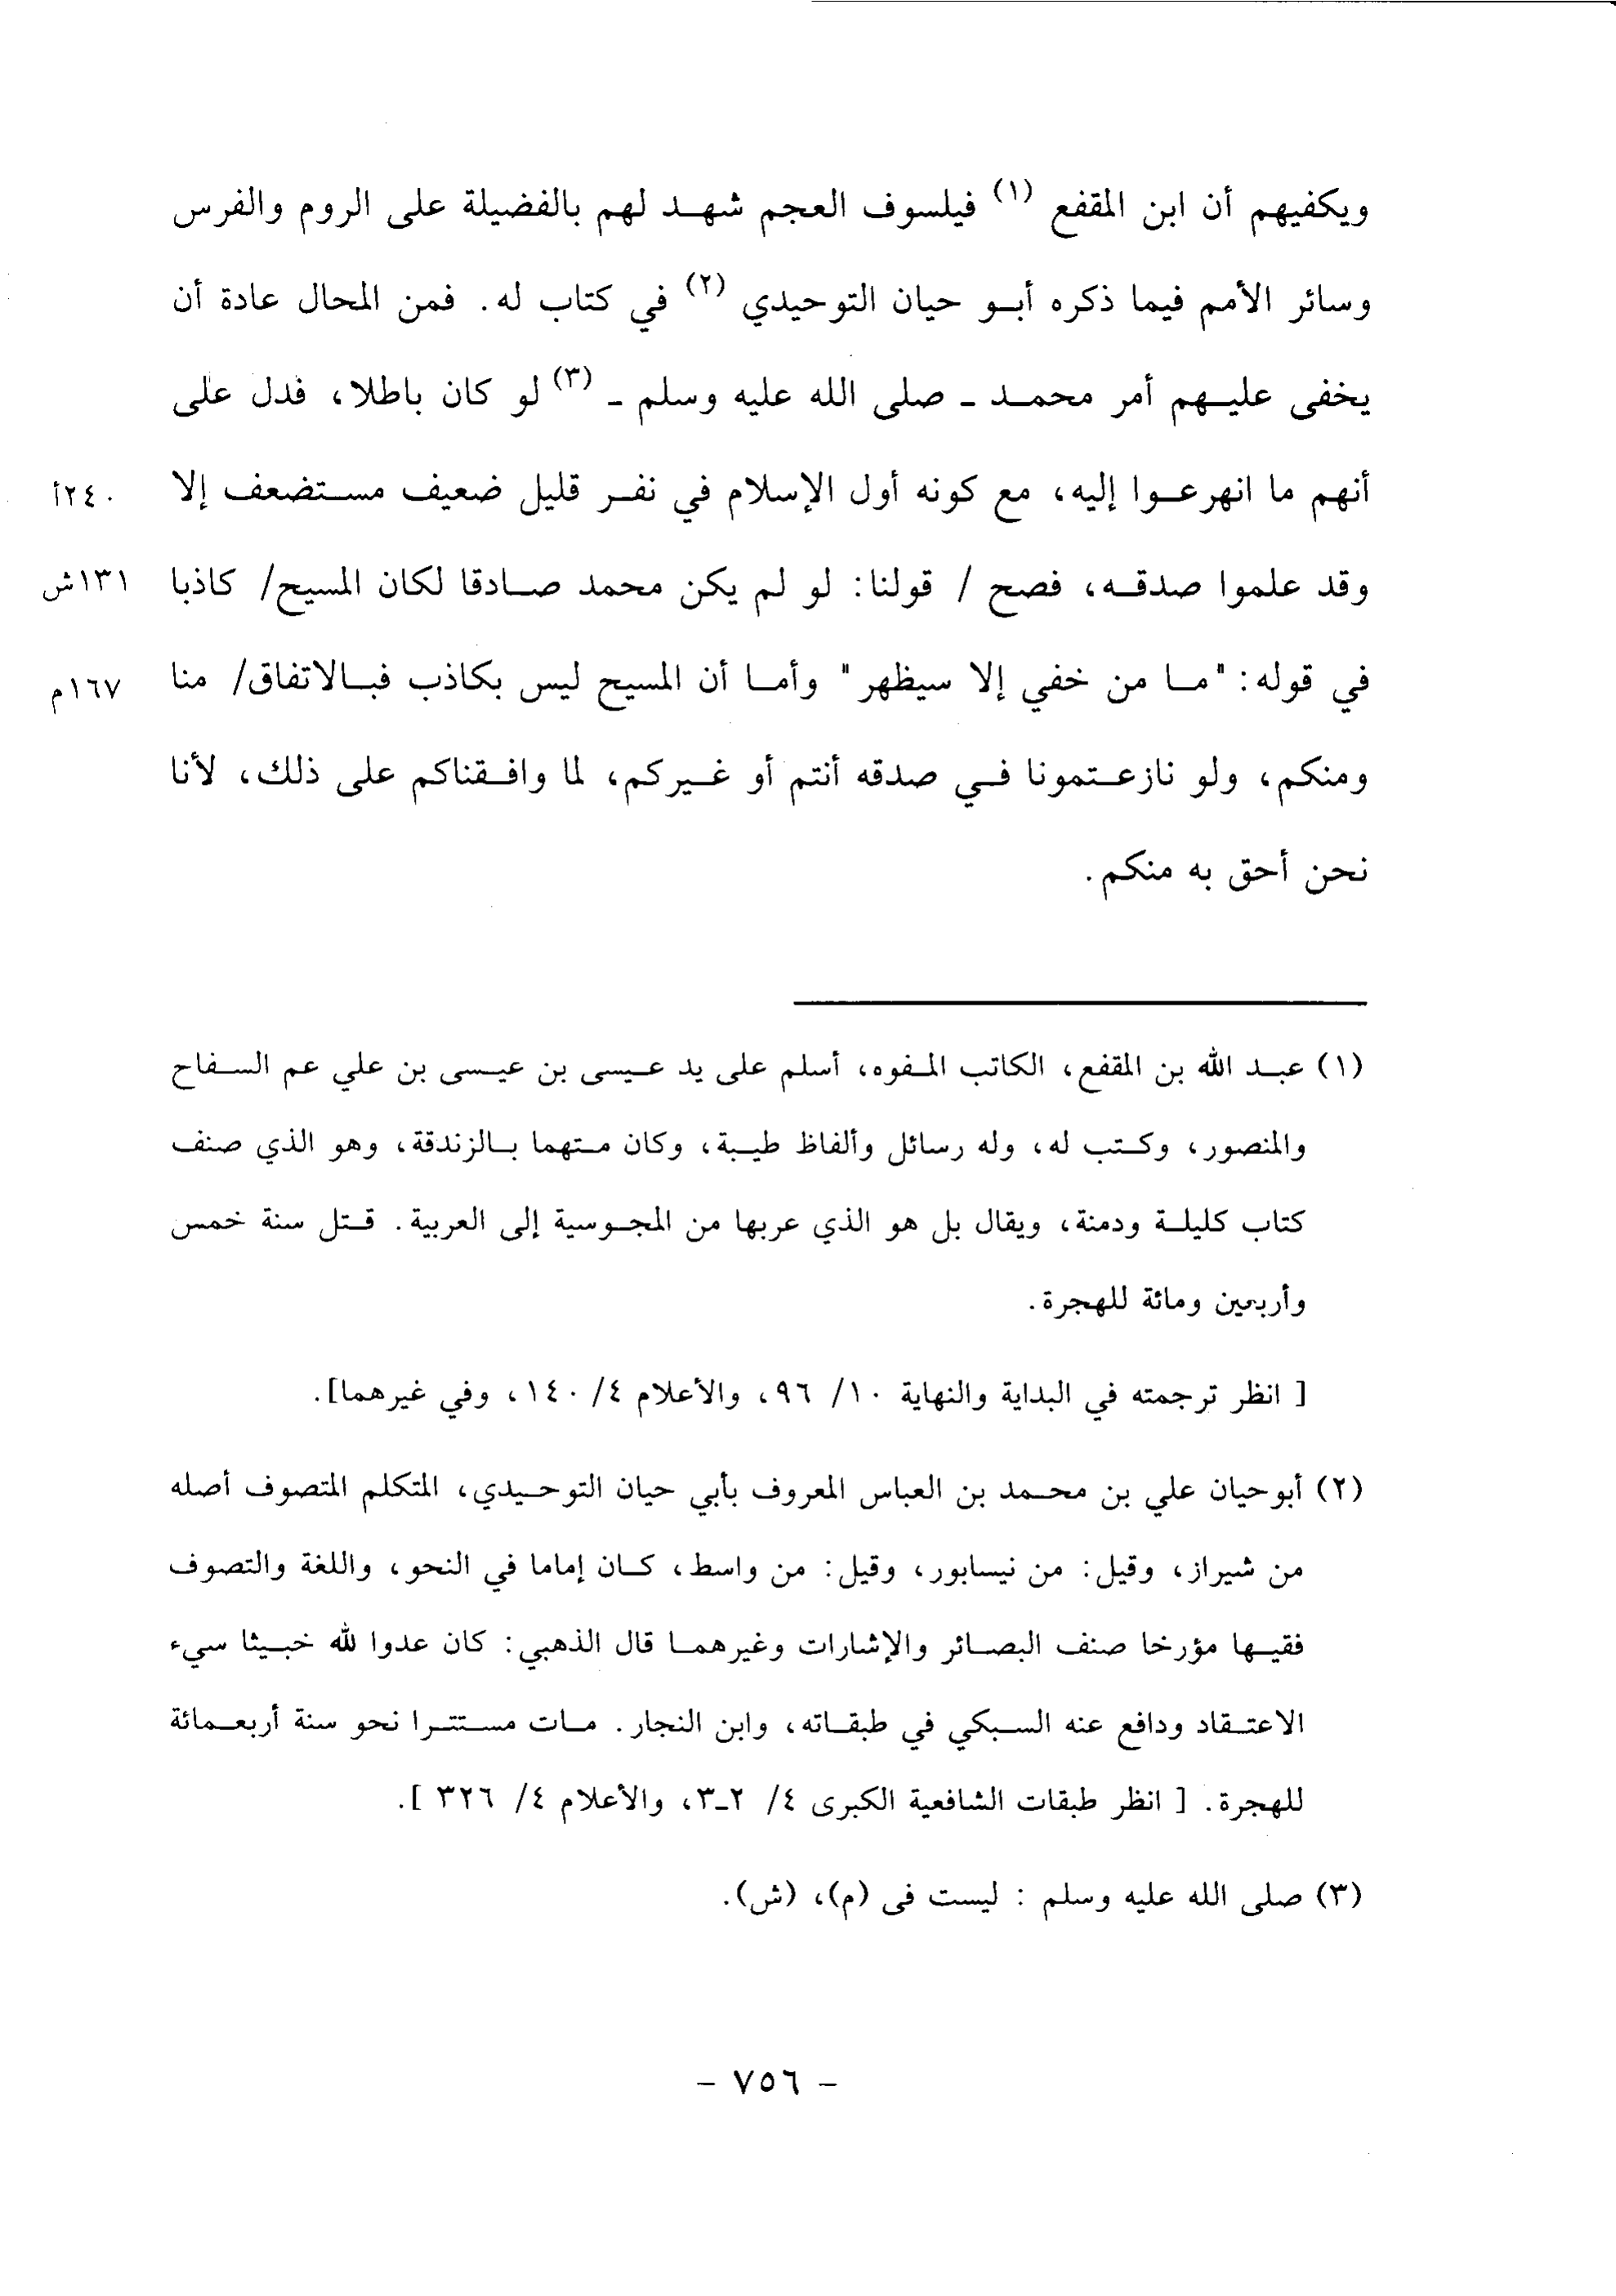 ويكفيهم أن ابن المقفع (١) فيلسوف العجم شهد لهم بالفضيلة على الروم والفرس
وسائر الأمم فيما ذكره أبو حيان التوحيدي (٢) في كتاب له. فمن المحال عادة أن
يخفى عليهم أمر محمد ـ صلى الله عليه وسلم ـ (٣) لو كان باطلا، فدل على
أنهم ما انهرعوا إليه، مع كونه أول الإسلام في نفر قليل ضعيف مستضعف إلا
٢٤٠أ
وقد علموا صدقه، فصح / قولنا: لو لم يكن محمد صادقا لكان المسيح/ كاذبا
١٣١ش
في قوله: "ما من خفي إلا سيظهر" وأما أن المسيح ليس بكاذب فبالاتفاق/ منا
١٦٧م
ومنكم، ولو نازعتمونا في صدقه أنتم أو غيركم، لما وافقناكم على ذلك، لأنا
نحن أحق به منكم.
(١) عبد الله بن المقفع، الكاتب المفوه، أسلم على يد عيسى بن عيسى بن علي عم السفاح
والمنصور، وكتب له، وله رسائل وألفاظ طيبة، وكان متهما بالزندقة، وهو الذي صنف
كتاب كليلة ودمنة، ويقال بل هو الذي عربها من المجوسية إلى العربية. قتل سنة خمس
وأربعين ومائة للهجرة.
[ انظر ترجمته في البداية والنهاية ١٠/ ٩٦، والأعلام ٤/ ١٤٠، وفي غيرهما].
(٢) أبوحيان علي بن محمد بن العباس المعروف بأبي حيان التوحيدي، المتكلم المتصوف أصله
من شيراز، وقيل: من نيسابور، وقيل: من واسط، كان إماما في النحو، واللغة والتصوف
فقيها مؤرخا صنف البصائر والإشارات وغيرهما قال الذهبي: كان عدوا لله خبيثا سيء
الاعتقاد ودافع عنه السبكي في طبقاته، وابن النجار. مات مستترا نحو سنة أربعمائة
للهجرة. [ انظر طبقات الشافعية الكبرى ٤/ ٢ـ٣، والأعلام ٤/ ٣٢٦ ].
(٣) صلى الله عليه وسلم : ليست فى (م)، (ش).
- ٧٥٦ -